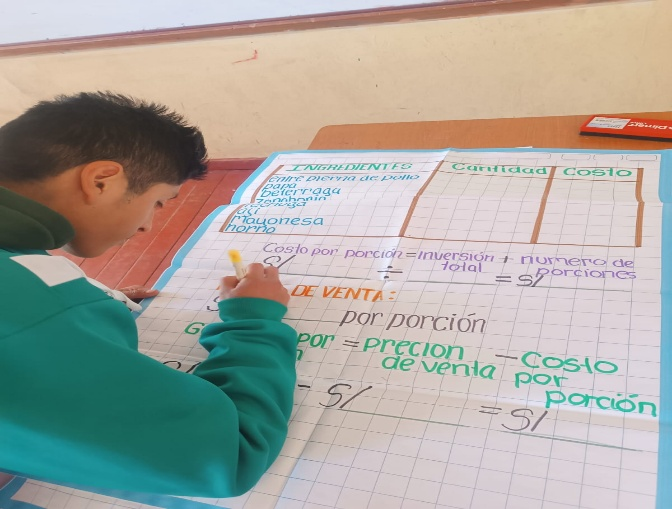 INGREDIENTES Cantidad Costo
entre pierna de pollo
papa
beterraga
zanahoria
ají
mayonesa
horno
Costo por porción = inversión + numero de
total porciones
S/ ÷ = S/
DE VENTA:
S
por porción
G por = precion - Costo
de venta por
porción
- S/ = S/